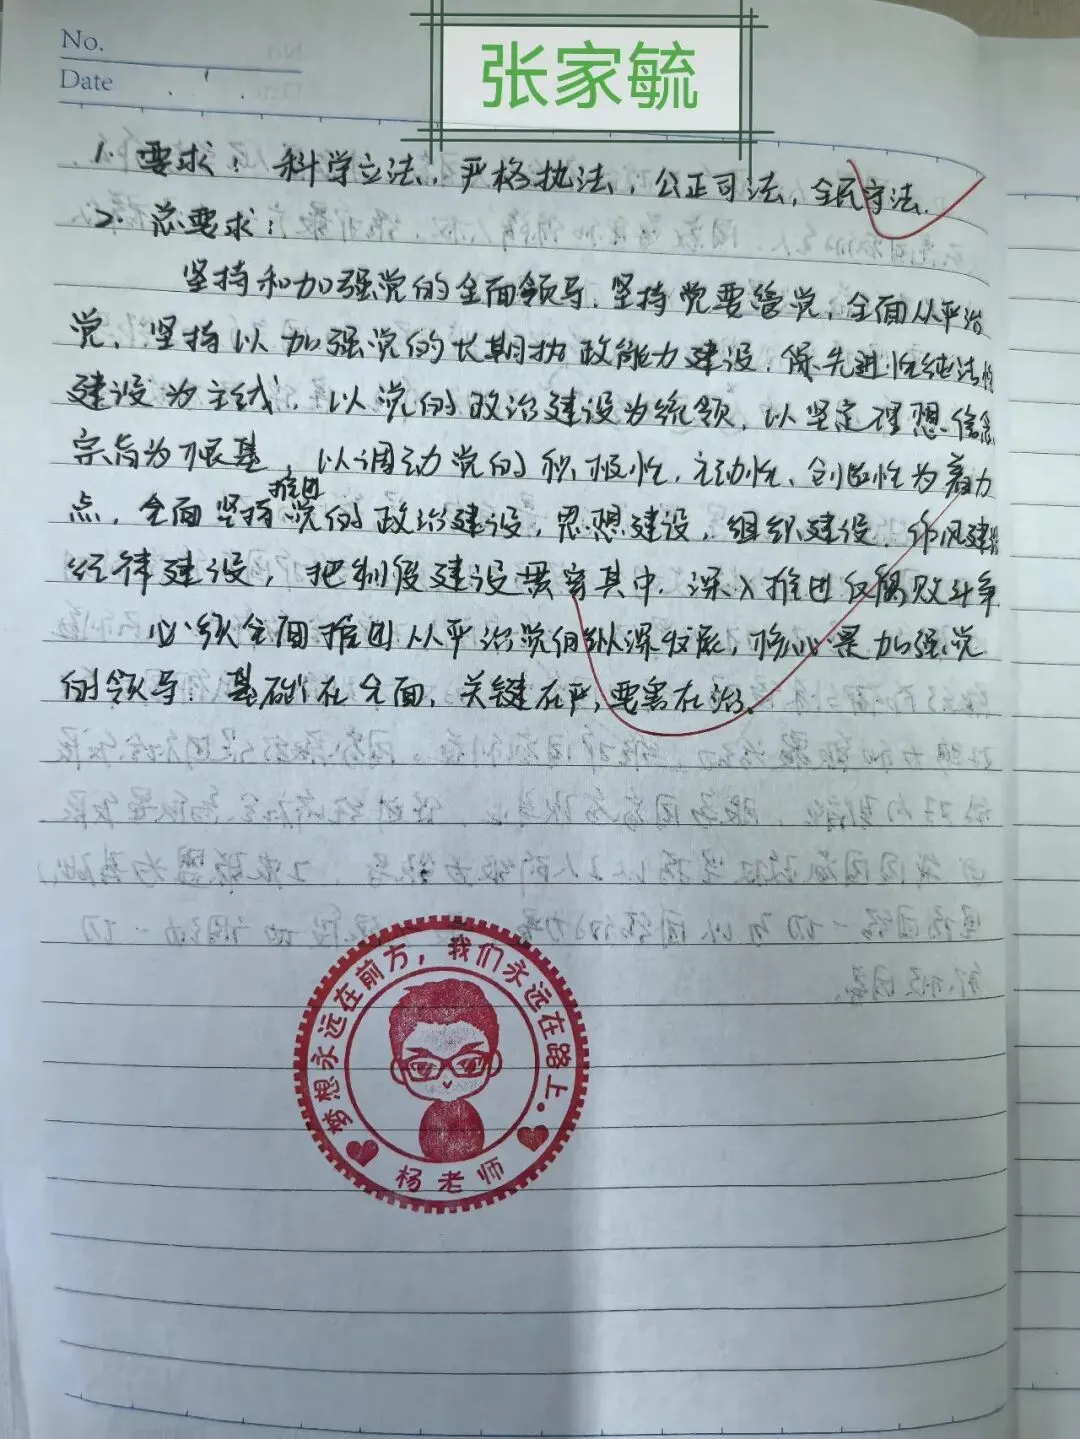 No.
Date
张家毓
1. 要求：科学立法，严格执法，公正司法，全民守法.
2. 总要求：
坚持和加强党的全面领导，坚持党要管党，全面从严治
党，坚持以加强党的长期执政能力建设，先进性纯洁性
建设为主线，以党的政治建设为统领，以坚定理想信念
宗旨为根基，以调动党的积极性，主动性，创造性为着力
点，全面坚持推进党的政治建设，思想建设，组织建设，作风建设
纪律建设，把制度建设贯穿其中，深入推进反腐败斗争
必须全面推进从严治党向纵深发展，核心是加强党
的领导，基础在全面，关键在严，要害在治。
梦想永远在前方，我们永远在路上.
杨老师